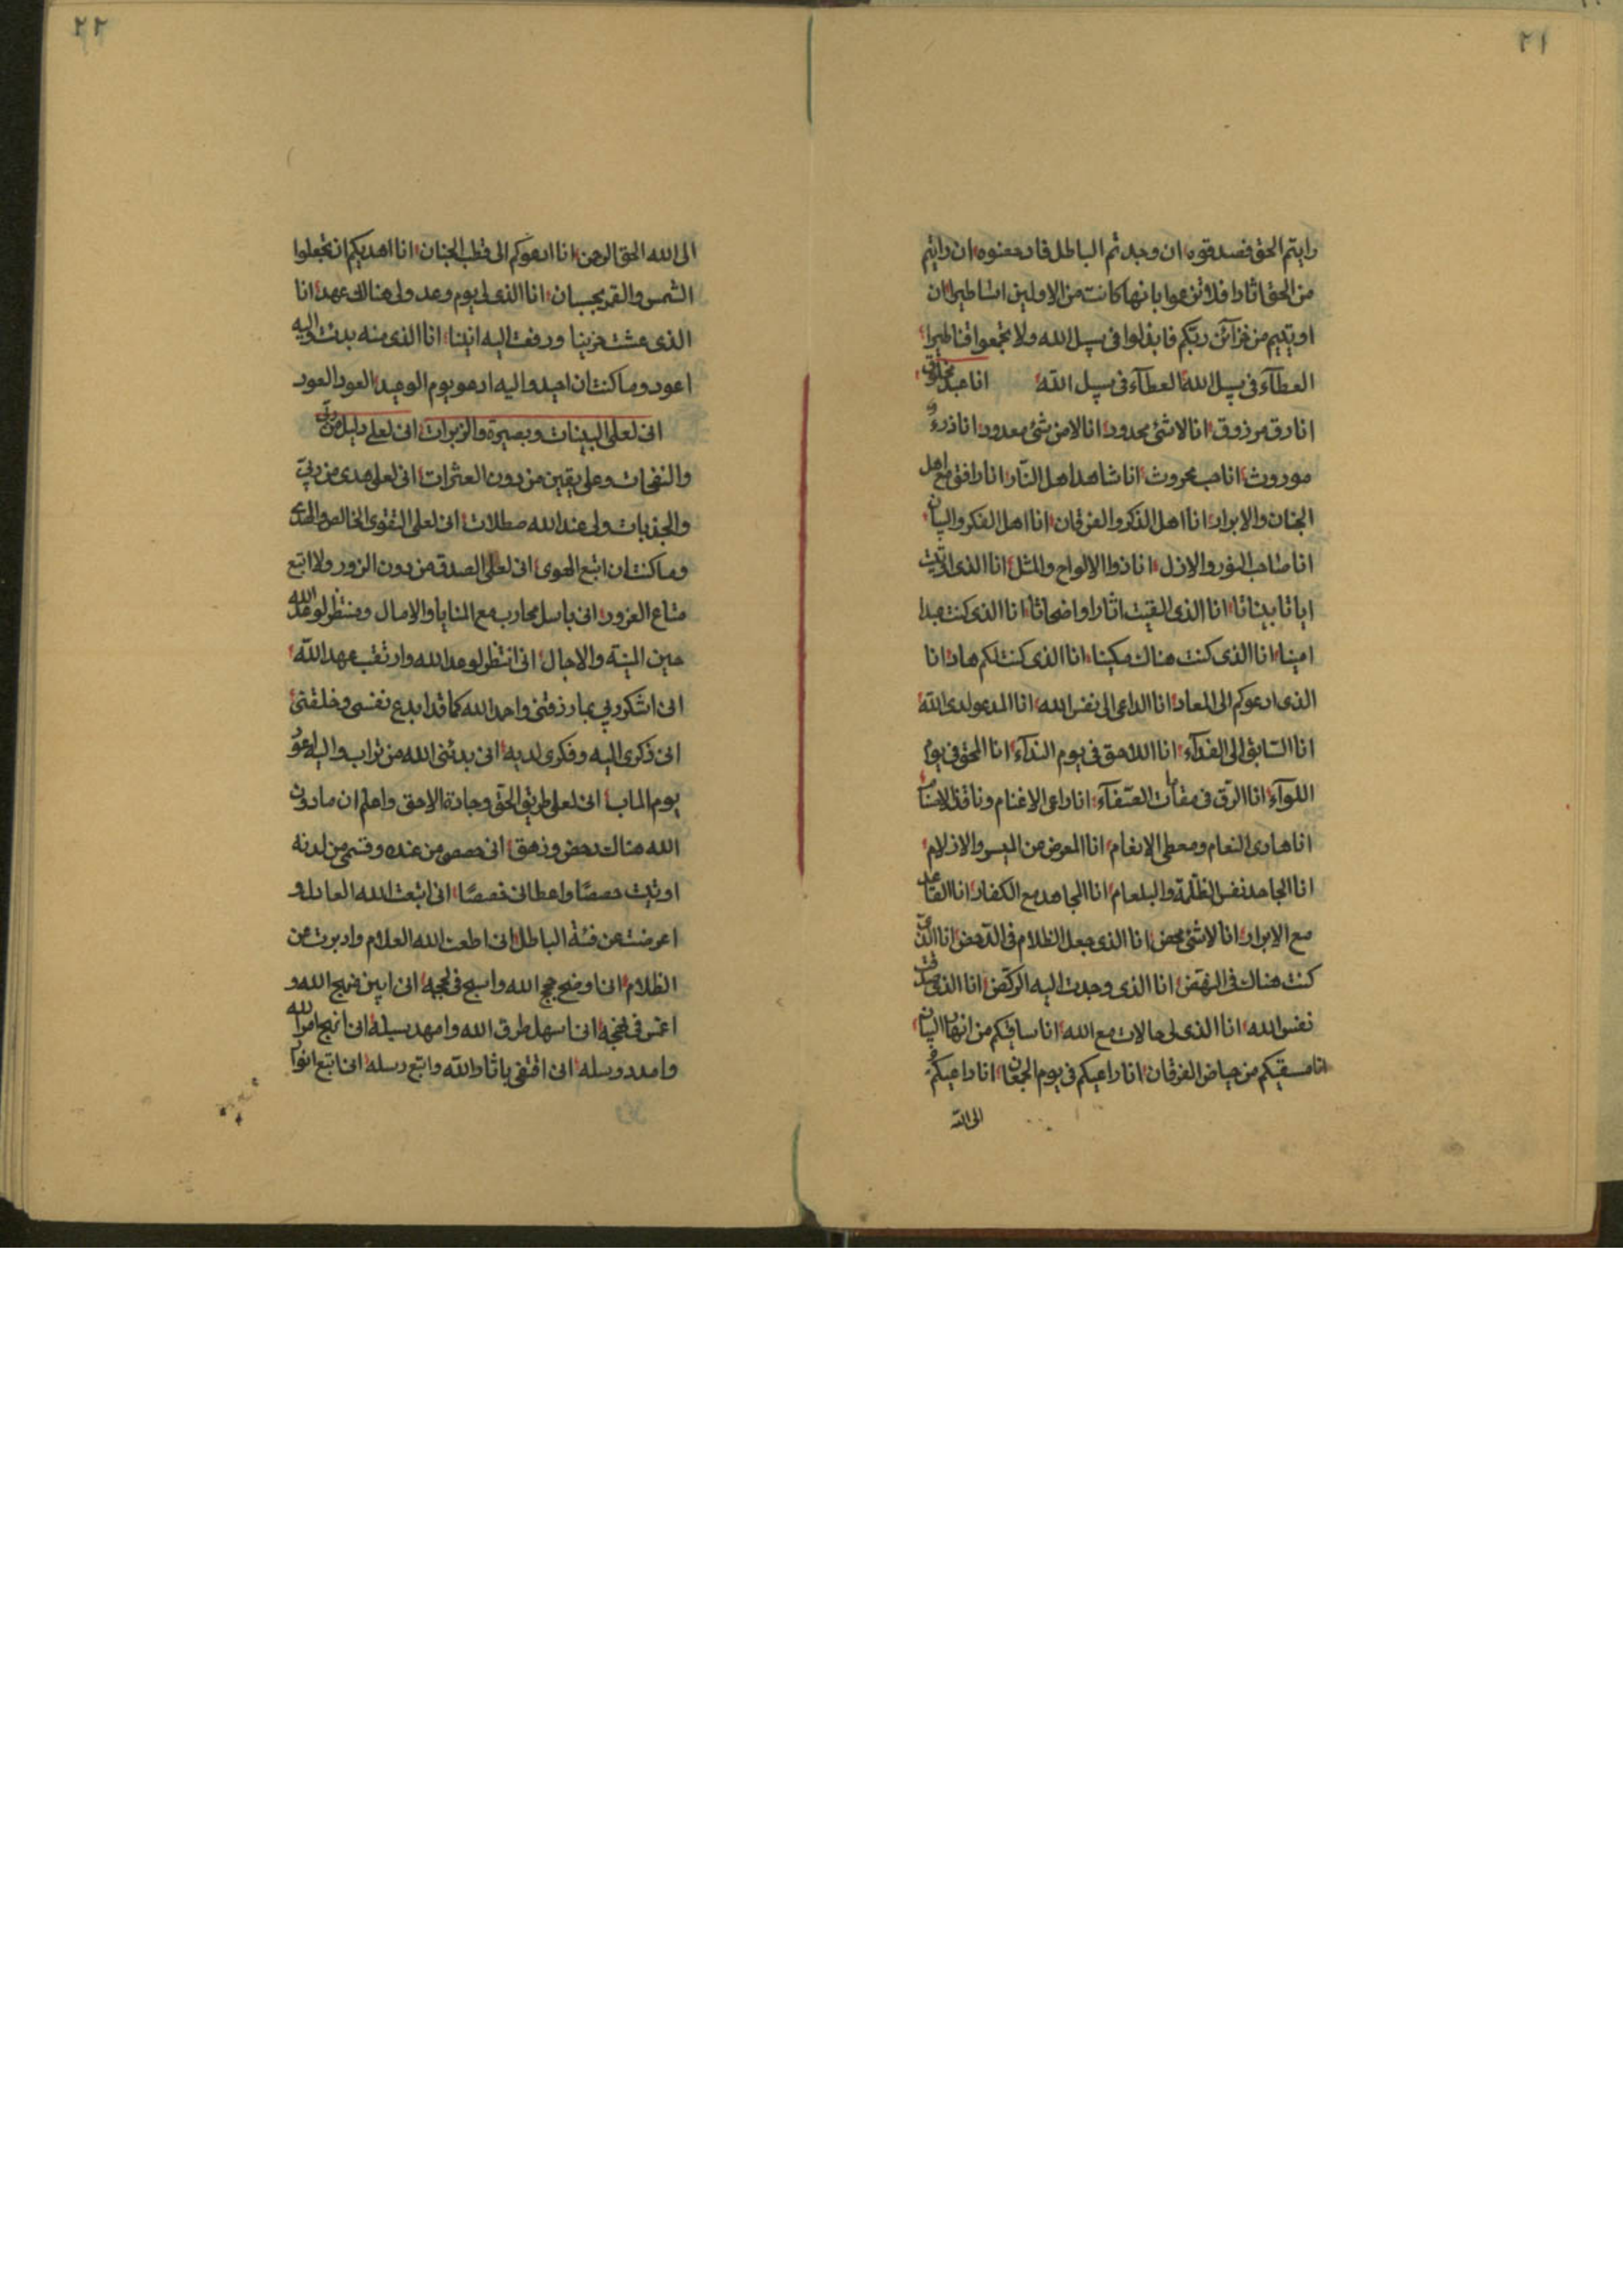 ٢١
رايتم الحق فصدقوه ان وجدتم الباطل فادحضوه ان رايتم
من الحق اثارا فلا تزعموا بانها كانت من الاولين اساطيرا ان
اوتيتم من خزآئن ربكم فابذلوا فى سبيل الله ولا تجمعوا قناطيرا
العطآء فى سبيل الله العطآء فى سبيل الله انا عبد مخلوق
انا رق مرزوق انا لاشئ محدود انا لا من شئ معدود انا ذرء
موروث انا حب محروث انا شاهد اهل النار انا رافق مع اهل
الجنان والابرار انا اهل الذكر والفرقان انا اهل الفكر والبيان
انا صاحب النور والازل انا ذوا الالواح والمثل انا الذى اوتيت
اياتا بيناتا انا الذى القيت اثارا واضحاتا انا الذى كنت عبدا
امينا انا الذى كنت هناك مكينا انا الذى كنت لكم هاد انا
الذى ادعوكم الى المعاد انا الداعى الى نفس الله انا المدعو لدى الله
انا السابق الى الفدآء انا اللاحق فى يوم الندآء انا المحق فى يوم
اللوآء انا الرق فى مقامات انا راعى الاغنام وناقذ الاصنام
انا هادى النعام ومعطى الانغام انا المعرض من الميسر والازلام
انا الجاهد نفس الظلمة والبلعام انا المجاهد مع الكفار انا القاعد
مع الابرار انا لاشئ محض انا الذى جعل الظلام فى الدحض انا الذى
كنت هناك فى النهض انا الذى وجدت اليه الركض انا الذى صدقت
نفس الله انا الذى لى حالات مع الله انا ساقيكم من انهار البيان
انا مسقيكم من حياض الفرقان انا راعيكم فى يوم الجمعان انا داعيكم
الى الله
٢٢
الى الله الحق الرحمن انا ادعوكم الى قطب الجنان انا اهديكم ان تجعلوا
الشمس والقمر بحسبان انا الذى لى يوم وعد ولى هنالك عهد انا
الذى عشت حزينا ورفعت اليه انينا انا الذى منه بدئت واليه
اعود وما كنت ان احيد واليه ادعو يوم الوعيد العود العود
انى لعلى البينات وبصيرة والزبرات انى لعلى دليل من ربى
والنفحات وعلى يقين من دون العثرات انى لعلى هدى من ربى
والجذبات ولى عند الله صطلات انى لعلى التقوى الخالص والهدى
وما كنت ان اتبع الهوى انى لعلى الصدق من دون الزور ولا اتبع
متاع الغرور انى باسل محارب مع المنايا والامال ومنتظر لوعد الله
حين المنية والاجال انى انتظر لوعد الله وارتقب عهد الله
انى اشكر ربى بما رزقنى واحمد الله كما قد ابدع نفسى وخلقنى
انى ذكرى اليه وفكرى لديه انى بدئنى الله من تراب واليه ادعو
يوم الماب انى لعلى طريق الحق وجادة الاحق واعلم ان مادون
الله هناك دحض وزهق انى حصصى من عنده وقسمى من لدنه
اوتيت حصصا واعطانى قصصا انى اتبعت الله العادل و
اعرضت عن فئة الباطل انى اطعت الله العلام وادبرت عن
الظلام انى اوضح حجج الله واسبح فى لججه انى ابين نهج الله و
اغمس فى انى اسهل طرق الله وامهد سبيله انى انهج امر الله
وامدد رسله انى اقتفى باثار الله واتبع رسله انى اتبع انوار